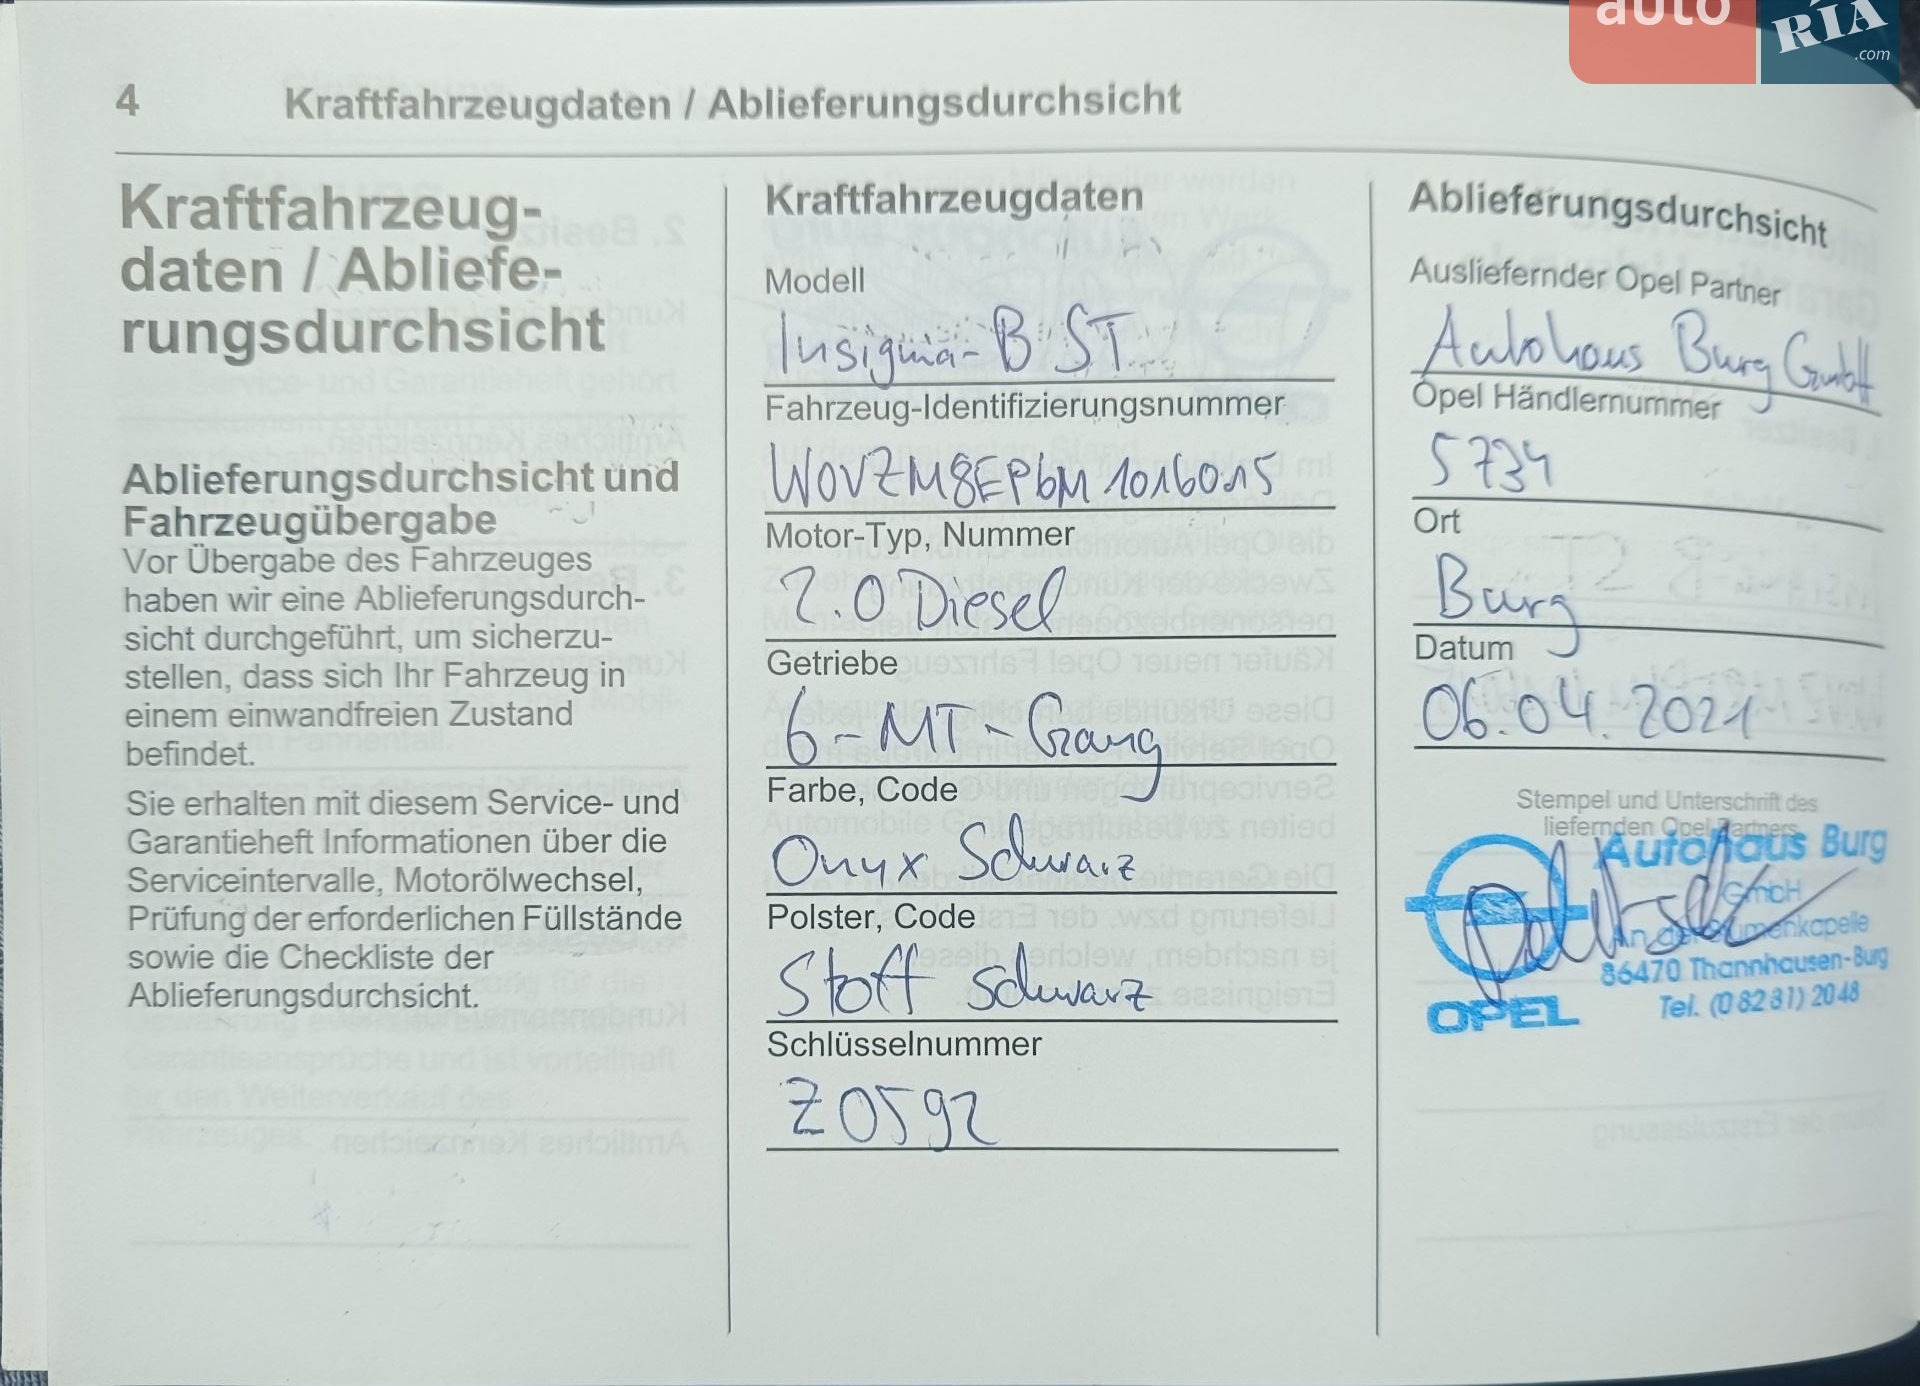 auto
RIA
.com
4 Kraftfahrzeugdaten / Ablieferungsdurchsicht
Kraftfahrzeug-
daten / Abliefe-
rungsdurchsicht
Ablieferungsdurchsicht und
Fahrzeugübergabe
Vor Übergabe des Fahrzeuges
haben wir eine Ablieferungsdurch-
sicht durchgeführt, um sicherzu-
stellen, dass sich Ihr Fahrzeug in
einem einwandfreien Zustand
befindet.
Sie erhalten mit diesem Service- und
Garantieheft Informationen über die
Serviceintervalle, Motorölwechsel,
Prüfung der erforderlichen Füllstände
sowie die Checkliste der
Ablieferungsdurchsicht.
Kraftfahrzeugdaten
Modell
Insignia-B ST
Fahrzeug-Identifizierungsnummer
W0VZM8EPbM1016015
Motor-Typ, Nummer
2.0 Diesel
Getriebe
6-MT-Gang
Farbe, Code
Onyx Schwarz
Polster, Code
Stoff schwarz
Schlüsselnummer
Z0592
Ablieferungsdurchsicht
Ausliefernder Opel Partner
Autohaus Burg GmbH
Opel Händlernummer
5734
Ort
Burg
Datum
06.04.2021
Stempel und Unterschrift des
liefernden Opel Partners
Autohaus Burg
GmbH
An der Blumenkapelle
86470 Thannhausen-Burg
Tel. (08281) 2048
OPEL